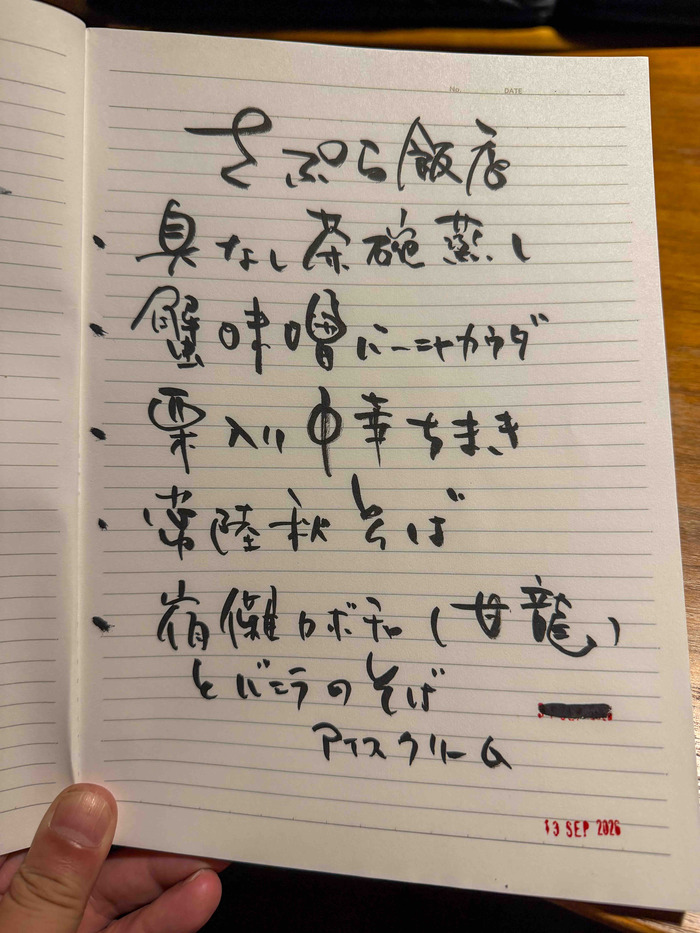 No. DATE
さぷら飯店
・具なし茶碗蒸し
・蟹味噌バーニャカウダ
・栗入り中華ちまき
・常陸秋そば
・宿儺カボチャ(甘龍)
とバニラのそば
アイスクリーム
13 SEP 2026